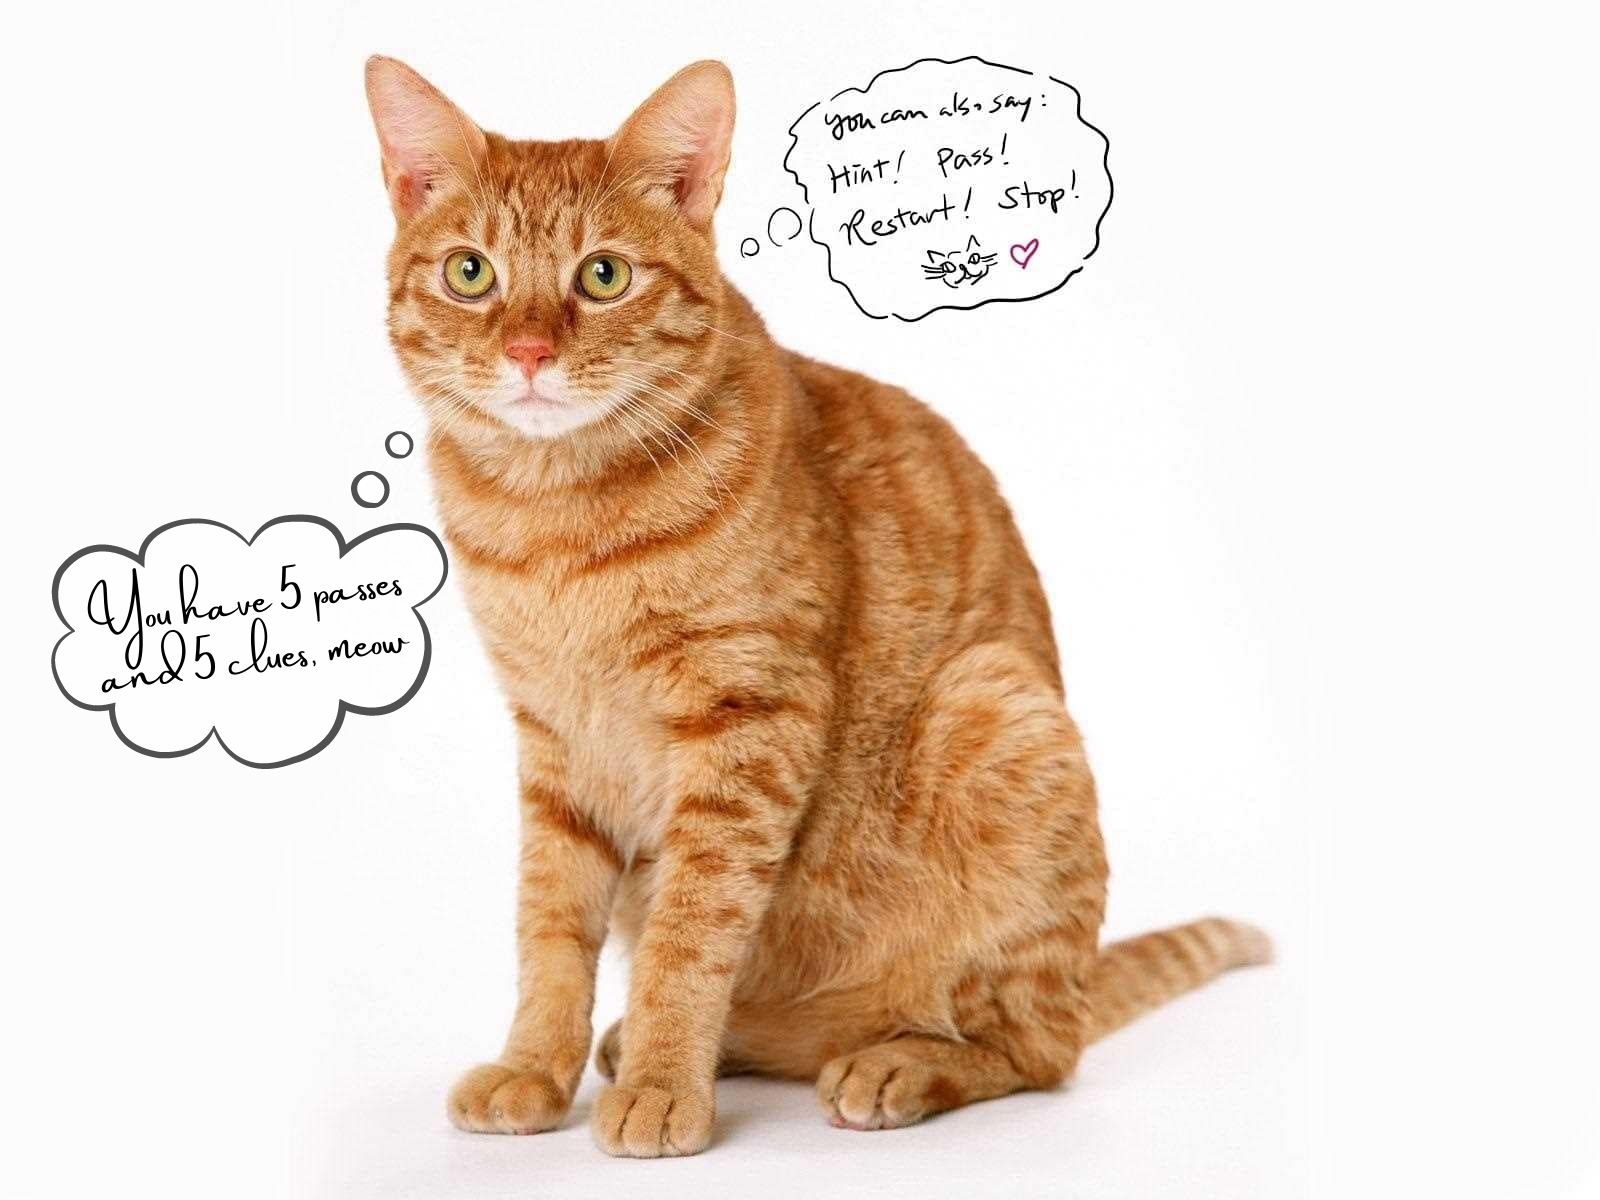 You can also say:
Hint! Pass!
Restart! Stop!
You have 5 passes
and 5 clues, meow